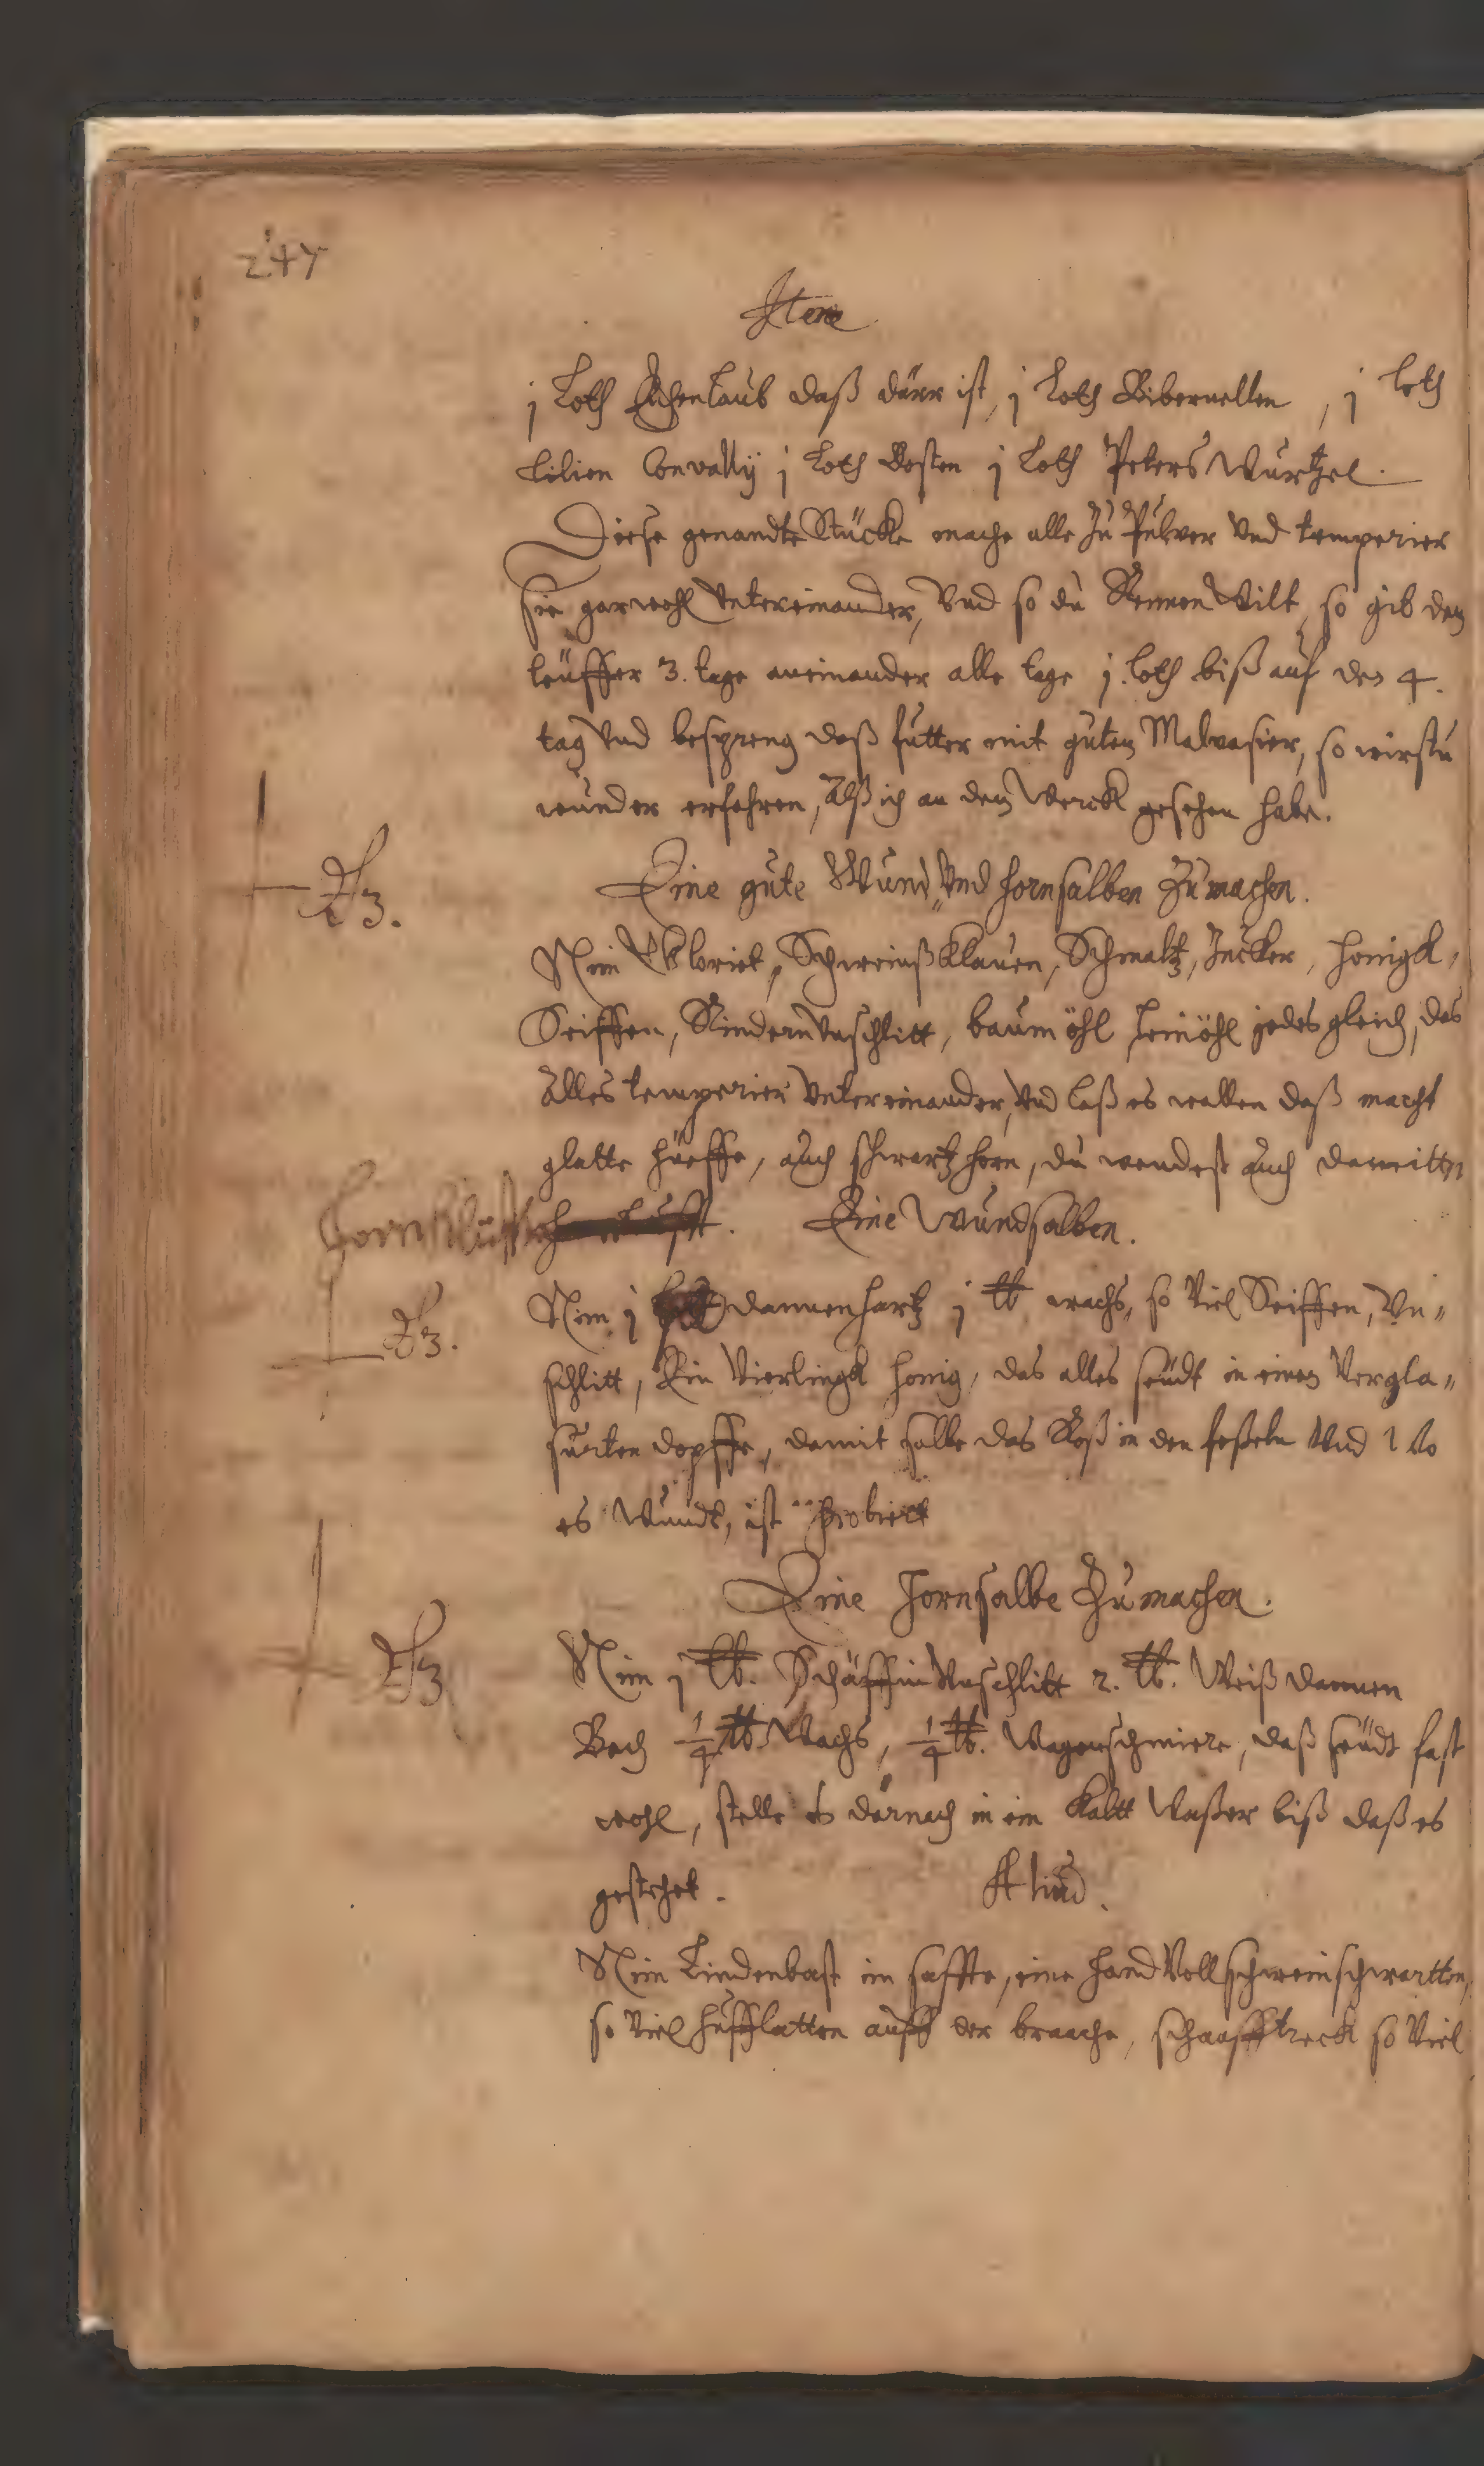 247
Item
j Loth Eichenlaub daß dürr ist, j Loth Bibernellen, j loth
Lilien Convally j Loth Dosten j Loth Peters Wurtzel.
Diese genandte Stücke mache alle Zu Pulver Vnd temperier
sie garwohl Vntereinander, Vnd so du Rennen Wilt, so gib dem
leuffer 3. tage aneinander alle tage j. loth biß auf den 4.
tag Vnd bespreng daß futter mit gutem Malvasier, so wirstu
wunder erfahren, Alß ich an dem Werck gesehen habe.
Eine gute Wund, Vnd hornsalben Zumachen.
Nim Schweinßklauen, Schmaltz, Zucker, honigk,
Seiffen, Rindern Vnschlitt, baumöhl Leinöhl jedes gleich, das
Alles temperier Vntereinander, Vnd laß es wallen daß macht
glatte hüeffe, auch schwartz horn, du wendest auch damitten
Hornklufft. Eine Wundsalben.
Nim j dannenhartz j lb wachs, so Viel Seiffen, Vn„
schlitt, Ein Vierlingk honig, das alles seudt in einem Vergla„
surten dopffe, damit salbe das Roß in den feßeln Vnd Wo
es Wundt, ist probiert
Eine Hornsalbe Zumachen.
Nim j lb. Schäffin Vnschlitt 2. lb. Weiß dannen
Bech ¼ lb Wachs, ¼ lb. Wagenschmiere, daß seudt fast
wohl, stelle es darnach in ein Kaltt Waßer biß daß es
gestehet. Aliud.
Nim Lindenbast im saffte, eine hand Voll schweinschwartten,
so Viel hufflatten auff der braache, schaafftreck so Viel